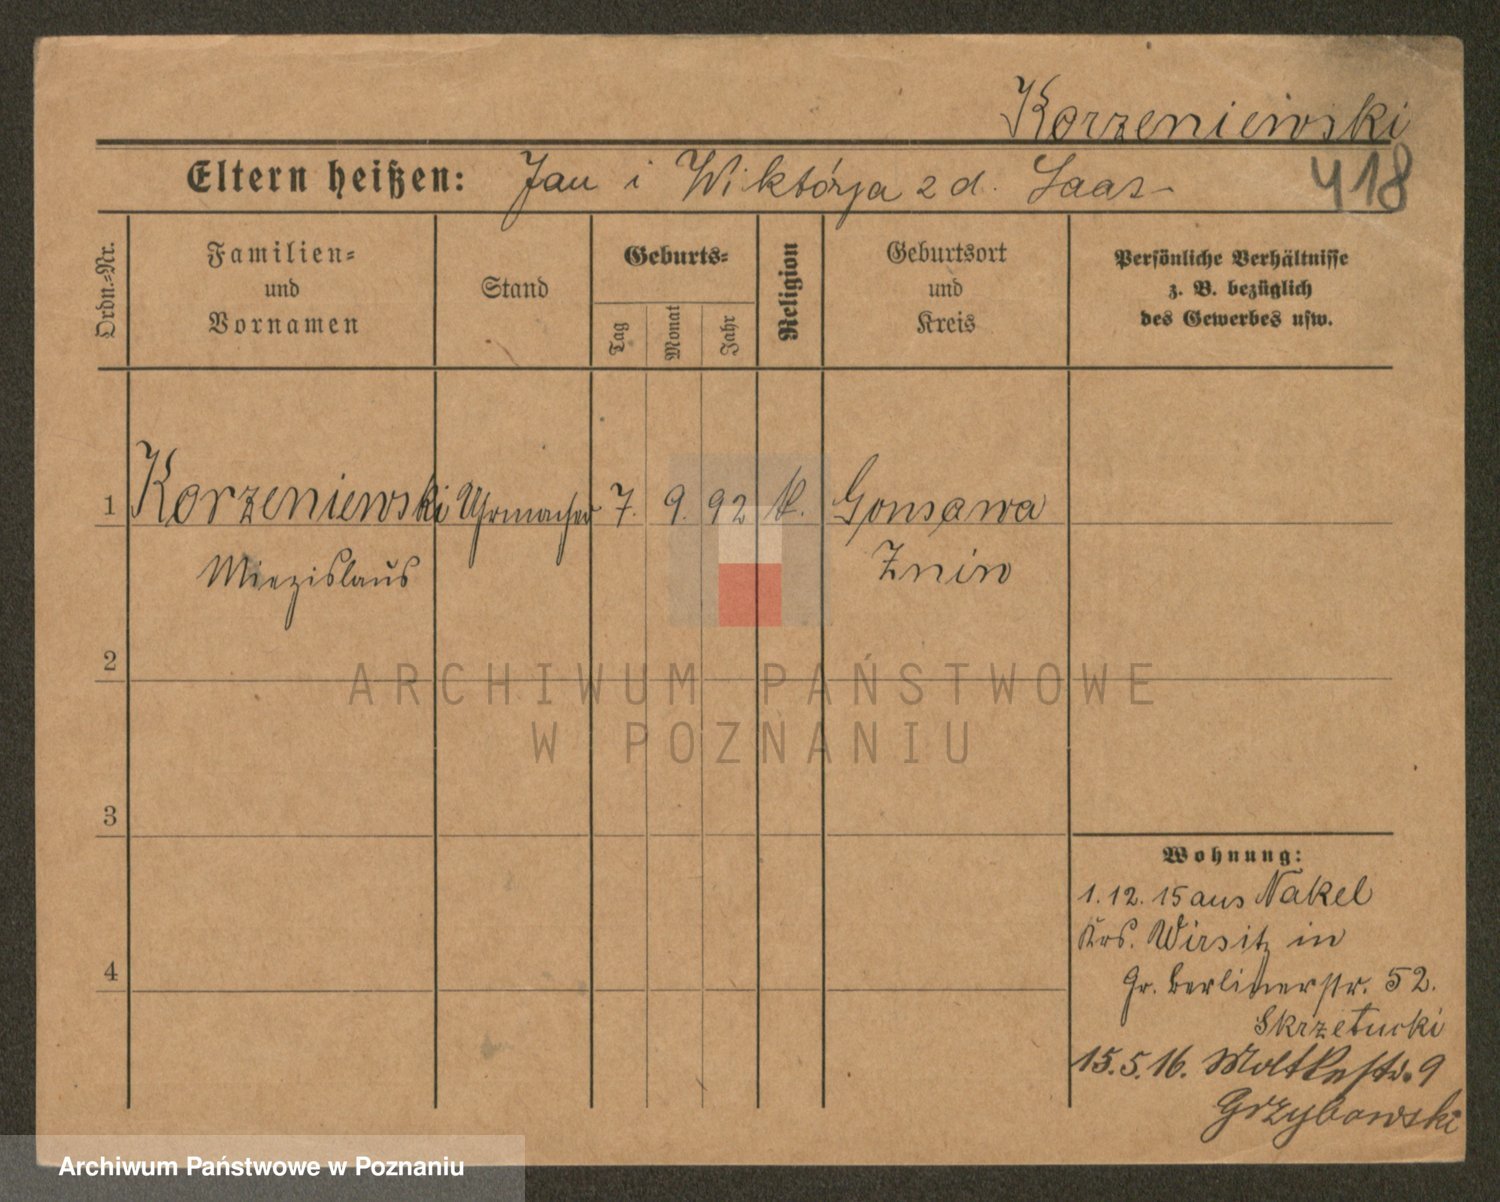 Korzeniewski
418
Eltern heißen: Jan i Wiktórja z d. Laas
Ordn.-Nr.
Familien- und Vornamen
Stand
Geburts-
Tag
Monat
Jahr
Religion
Geburtsort und Kreis
Persönliche Verhältnisse
z. B. bezüglich
des Gewerbes usw.
1 Korzeniewski Uhrmacher 7. 9. 92 k. Gonsawa
Miezislaus Znin
2
3
4
Wohnung:
1. 12. 15 aus Nakel
Krs. Wirsitz in
Gr. Berlinerstr. 52.
Skrzetucki
15. 5. 16. Moltkestr. 9
Grzybowski
ARCHIWUM PAŃSTWOWE
W POZNANIU
Archiwum Państwowe w Poznaniu